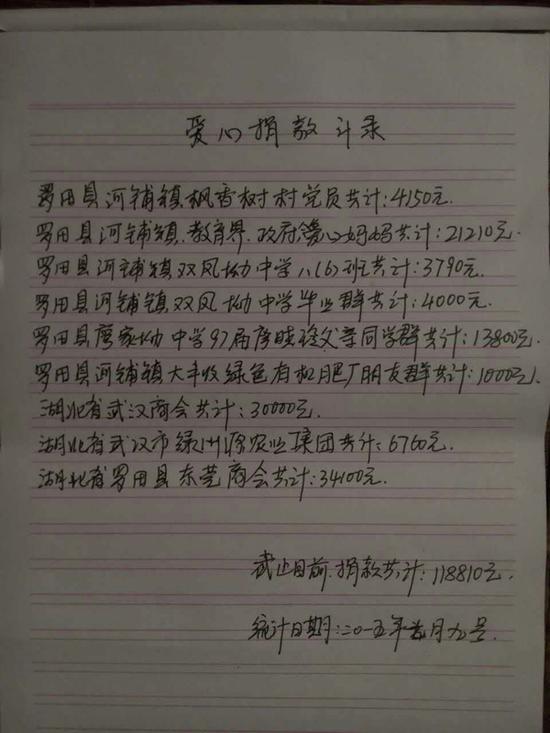 爱心捐款计录
罗田县河铺镇枫香树村党员共计:4150元.
罗田县河铺镇.教育界.政府.爱心妈妈共计:21210元.
罗田县河铺镇双凤坳中学八(6)班共计:3790元.
罗田县河铺镇双凤坳中学毕业群共计:4000元.
罗田县廖家坳中学97届 父亲同学群共计:13800元.
罗田县河铺镇大丰收绿色有机肥厂朋友群共计:1000元.
湖北省武汉商会共计:30000元.
湖北省武汉市绿州源农业集团共计:6760元.
湖北省罗田县东莞商会共计:34100元.
截止目前.捐款共计:118810元.
统计日期:二〇一五年 月九号